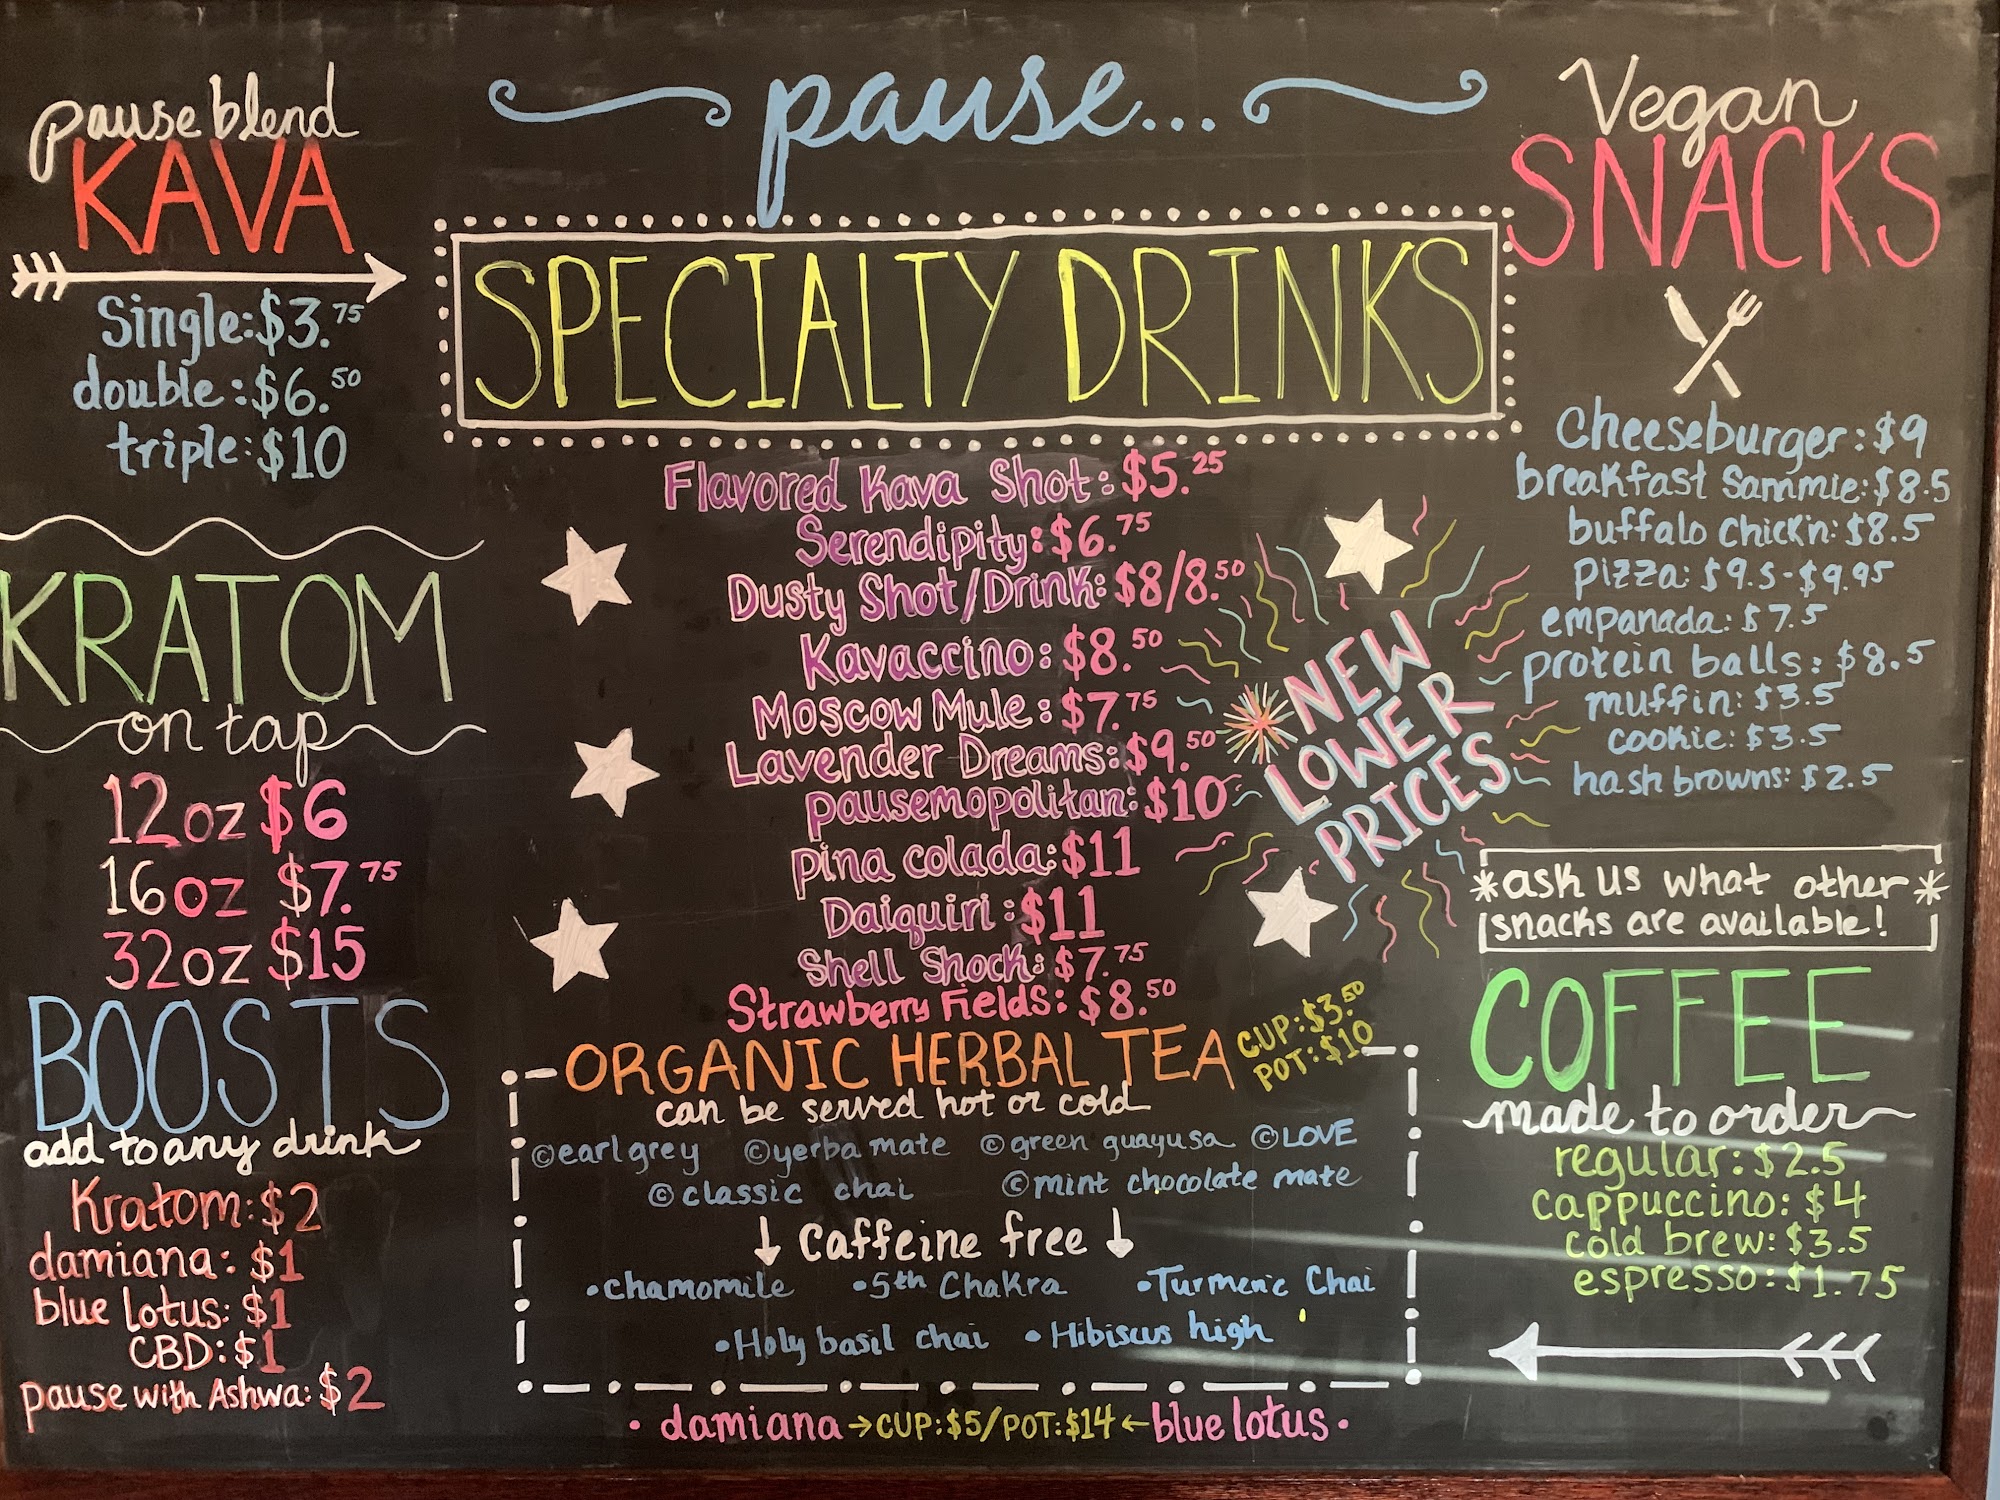 pause blend
KAVA
Single: $3.75
double: $6.50
triple: $10
KRATOM
on tap
12oz $6
16oz $7.75
32oz $15
BOOSTS
add to any drink
Kratom: $2
damiana: $1
blue lotus: $1
CBD: $1
pause with Ashwa: $2
pause...
SPECIALTY DRINKS
Flavored Kava Shot: $5.25
Serendipity: $6.75
Dusty Shot/Drink: $8/8.50
Kavaccino: $8.50
Moscow Mule: $7.75
Lavender Dreams: $9.50
pausemopolitan: $10
pina colada: $11
Daiquiri: $11
Shell Shock: $7.75
Strawberry Fields: $8.50
NEW
LOWER
PRICES
ORGANIC HERBAL TEA
CUP: $3.50
POT: $10
can be served hot or cold
©earl grey ©yerba mate ©green guayusa ©LOVE
©classic chai ©mint chocolate mate
↓ Caffeine free ↓
•chamomile •5th Chakra •Turmeric Chai
•Holy basil chai •Hibiscus high
• damiana →CUP:$5/POT:$14← blue lotus •
Vegan
SNACKS
Cheeseburger: $9
breakfast Sammie: $8.5
buffalo Chick'n: $8.5
pizza: $9.5-$9.95
empanada: $7.5
protein balls: $8.5
muffin: $3.5
cookie: $3.5
hash browns: $2.5
*ask us what other*
snacks are available!
COFFEE
made to order
regular: $2.5
cappuccino: $4
cold brew: $3.5
espresso: $1.75